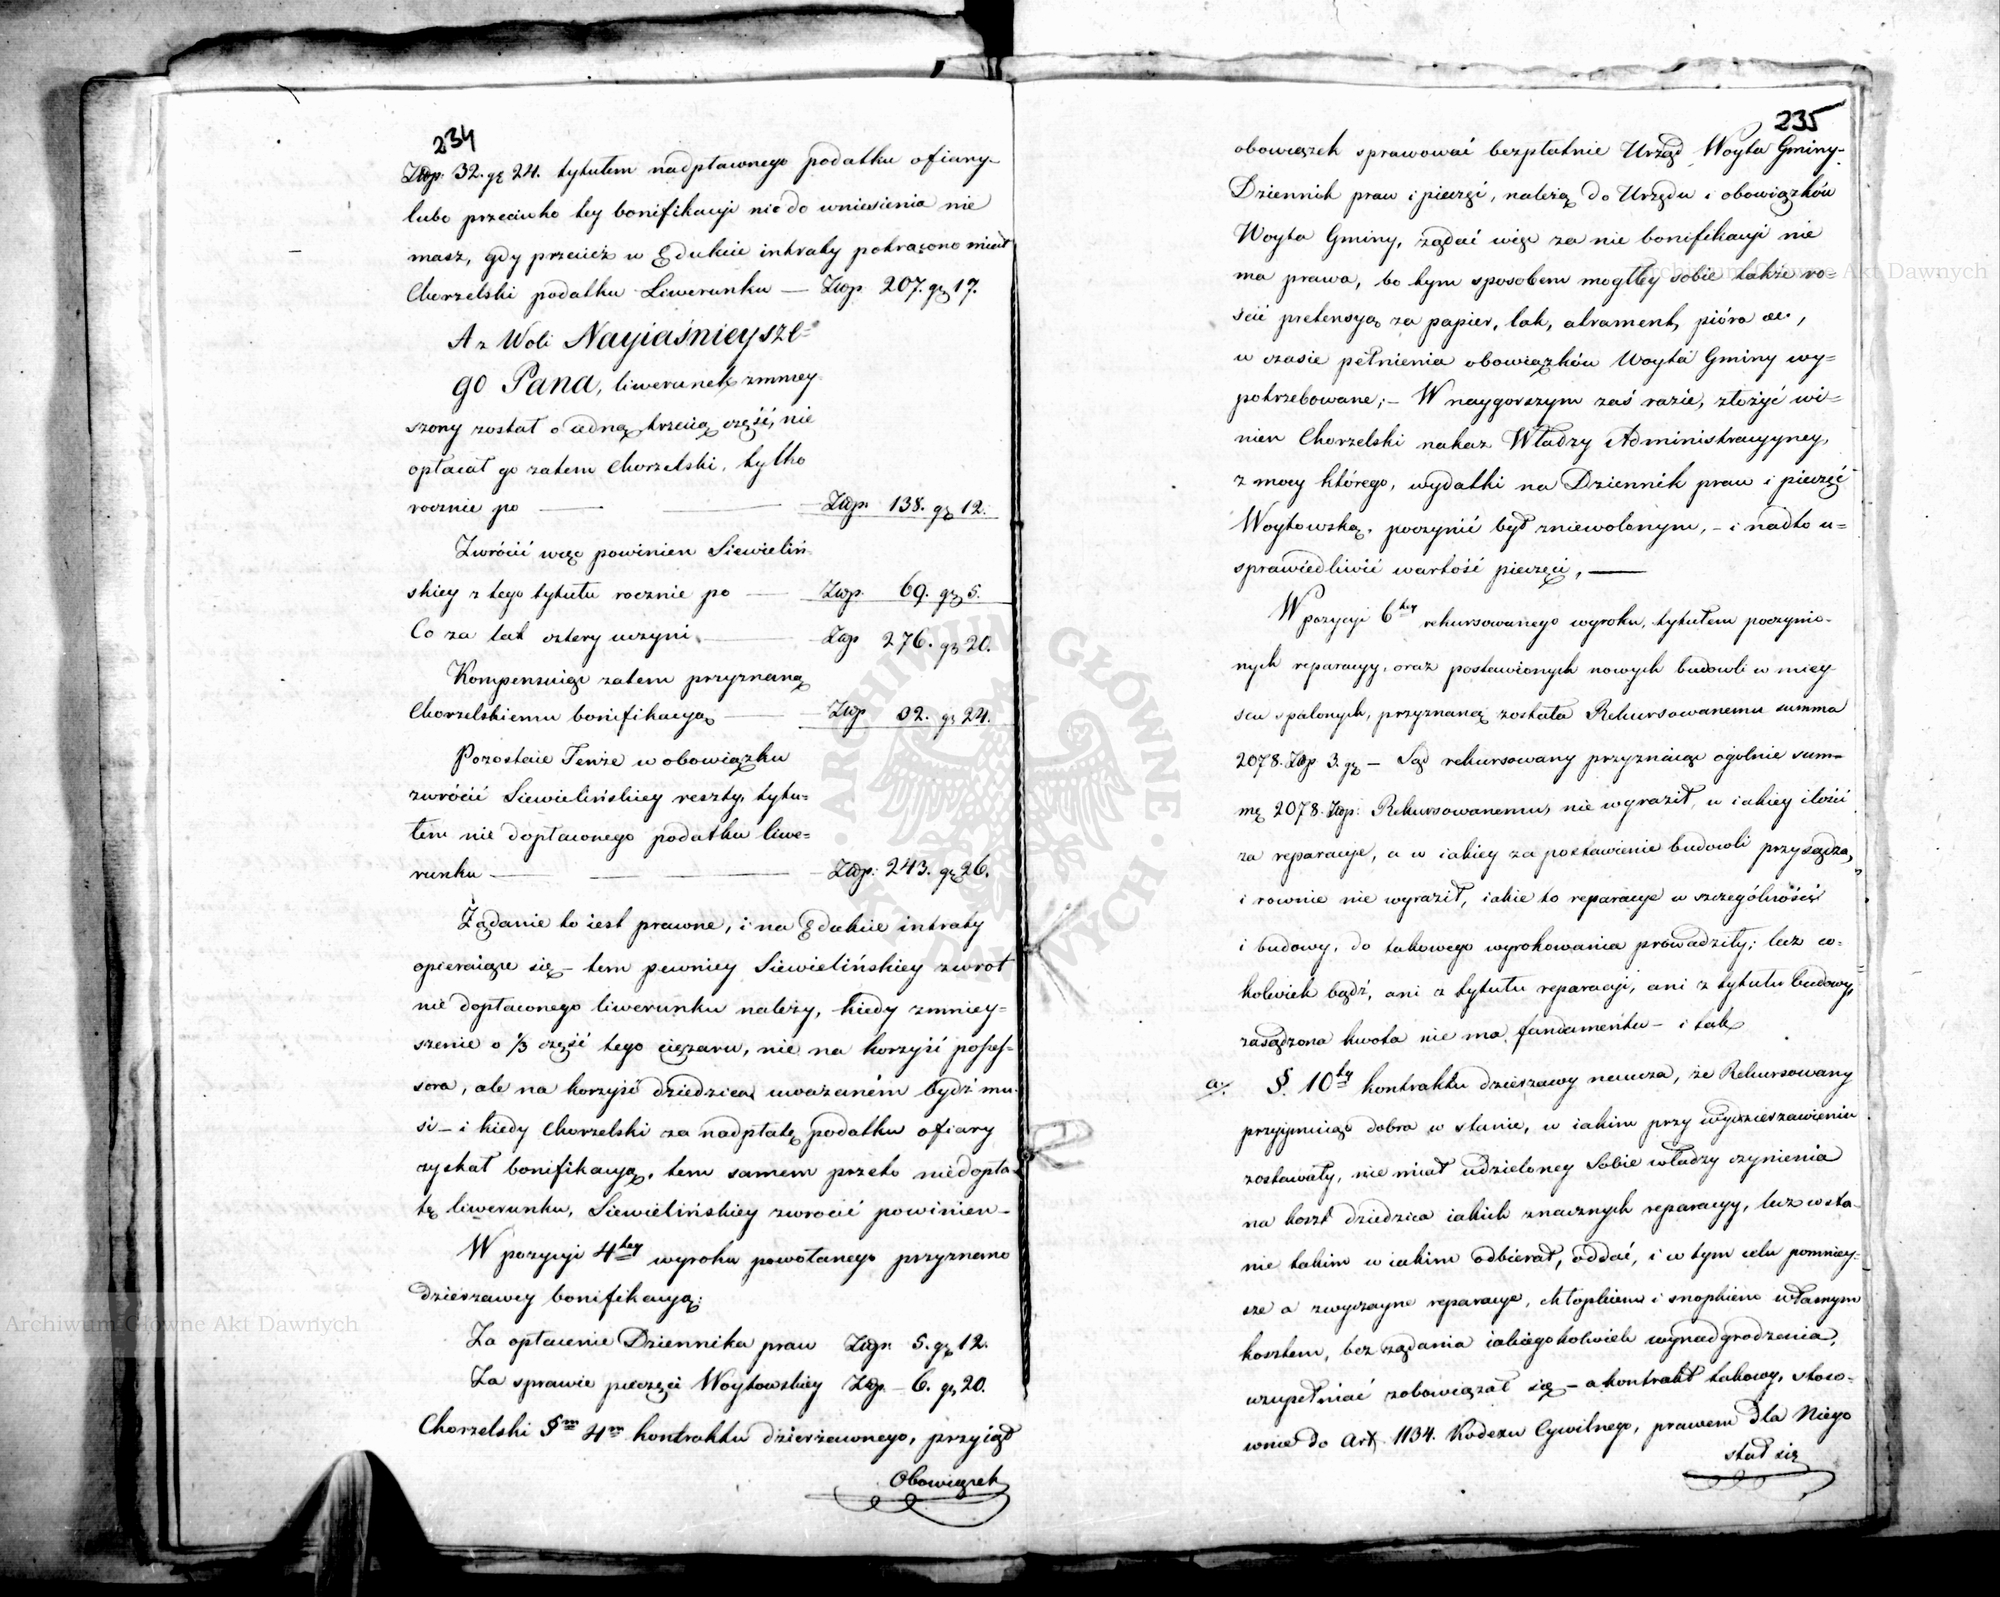 234
Złłp. 32. gr 24. tytułem nadpłaconego podatku ofiary
lubo przeciwko tey bonifikacyi nic do wniesienia nie
masz, gdy przecież w Edukcie intraty potrącono miał
Chorzelski podatku Liwerunku — Złłp 207. gr 17.
A z Woli Nayiaśnieysze=
go Pana, liwerunek zmniey-
szony został o iedną trzecią część, nie
opłacał go zatem Chorzelski, tylko
rocznie po — — Złłp. 138. gr 12.
Zwrócić więc powinien Siewieliń-
skiey z tego tytułu rocznie po — Złłp. 69. gr 5.
Co za lat cztery uczyni — Złłp 276. gr 20.
Kompensuiąc zatem przyznaną
Chorzelskiemu bonifikacyą — Złłp 32. gr 24.
Pozostaie Tenże w obowiązku
zwrócić Siewielińskiey reszty, tytu=
łem nie dopłaconego podatku liwe=
runku — — Złłp. 243. gr 26.
Żądanie to iest prawne, i na Edukcie intraty
opieraiące się — tem pewniey Siewielińskiey zwrot
nie dopłaconego liwerunku należy, kiedy zmniey=
szenie o 1/3 część tego ciężaru, nie na korzyść posses=
sora, ale na korzyść dziedzica uważaném bydź mu-
si — i kiedy Chorzelski za nadpłatę podatku ofiary
zyskał bonifikacyą, tem samem przeto niedopła-
tę liwerunku, Siewielińskiey zwrócić powinien —
W pozycyi 4tey wyroku powołanego przyznano
dzierżawcy bonifikacyą:
Za opłacenie Dziennika praw Złłp. 5. gr 12.
Za sprawie pieczęci Woytowskiey Złłp — 6. gr 20.
Chorzelski §m 4m kontraktu dzierżawnego, przyiął
Obowiązek
235
obowiązek sprawować bezpłatnie Urząd Woyta Gminy —
Dziennik praw i pieczęć, należą do Urzędu i obowiązków
Woyta Gminy, żądać więc za nie bonifikacyi nie
ma prawa, bo tym sposobem mógłby sobie także ro=
ścić pretensyą za papier, lak, atrament, pióra etc.,
w czasie pełnienia obowiązków Woyta Gminy wy=
potrzebowane; — W naygorszym zaś razie, złożyć wi=
nien Chorzelski nakaz Władzy Administracyyney,
z mocy którego, wydatki na Dziennik praw i pieczęć
Woytowską, poczynić był zniewolonym, — i nadto u=
sprawiedliwić wartość pieczęci, —
W pozycyi 6tey rekursowanego wyroku, tytułem poczynio-
nych reparacyy, oraz postawionych nowych budowli w miey-
scu spalonych, przyznaną została Rekursowanemu summa
2078. Złłp 3. gr — Sąd rekursowany przyznaiąc ogólnie sum=
mę 2078. Złłp. Rekursowanemu, nie wyraził, w iakiey ilości
za reparacye, a w iakiey za postawienie budowli przysądza,
i równie nie wyraził, iakie to reparacye w szczególności
i budowy, do takowego wyrokowania prowadziły; lecz co-
kolwiek bądź, ani z tytułu reparacyi, ani z tytułu budowy,
zasądzona kwota nie ma fundamentu — i tak
a/. §. 10ty kontraktu dzierżawy naucza, że Rekursowany
przyymuiąc dobra w stanie, w iakim przy wydzierżawieniu
zostawały, nie miał udzieloney Sobie władzy czynienia
na koszt dziedzica iakich znacznych reparacyy, lecz w sta-
nie takim w iakim odbierał, oddać, i w tym celu pomniey-
sze a zwyczayne reparacye, chłopkiem i snopkiem własnym
kosztem, bez żądania iakiegokolwiek wynadgrodzenia,
uzupełniać zobowiązał się — a kontrakt takowy, stoso-
wnie do Art. 1134. Kodexu Cywilnego, prawem dla Niego
stał się